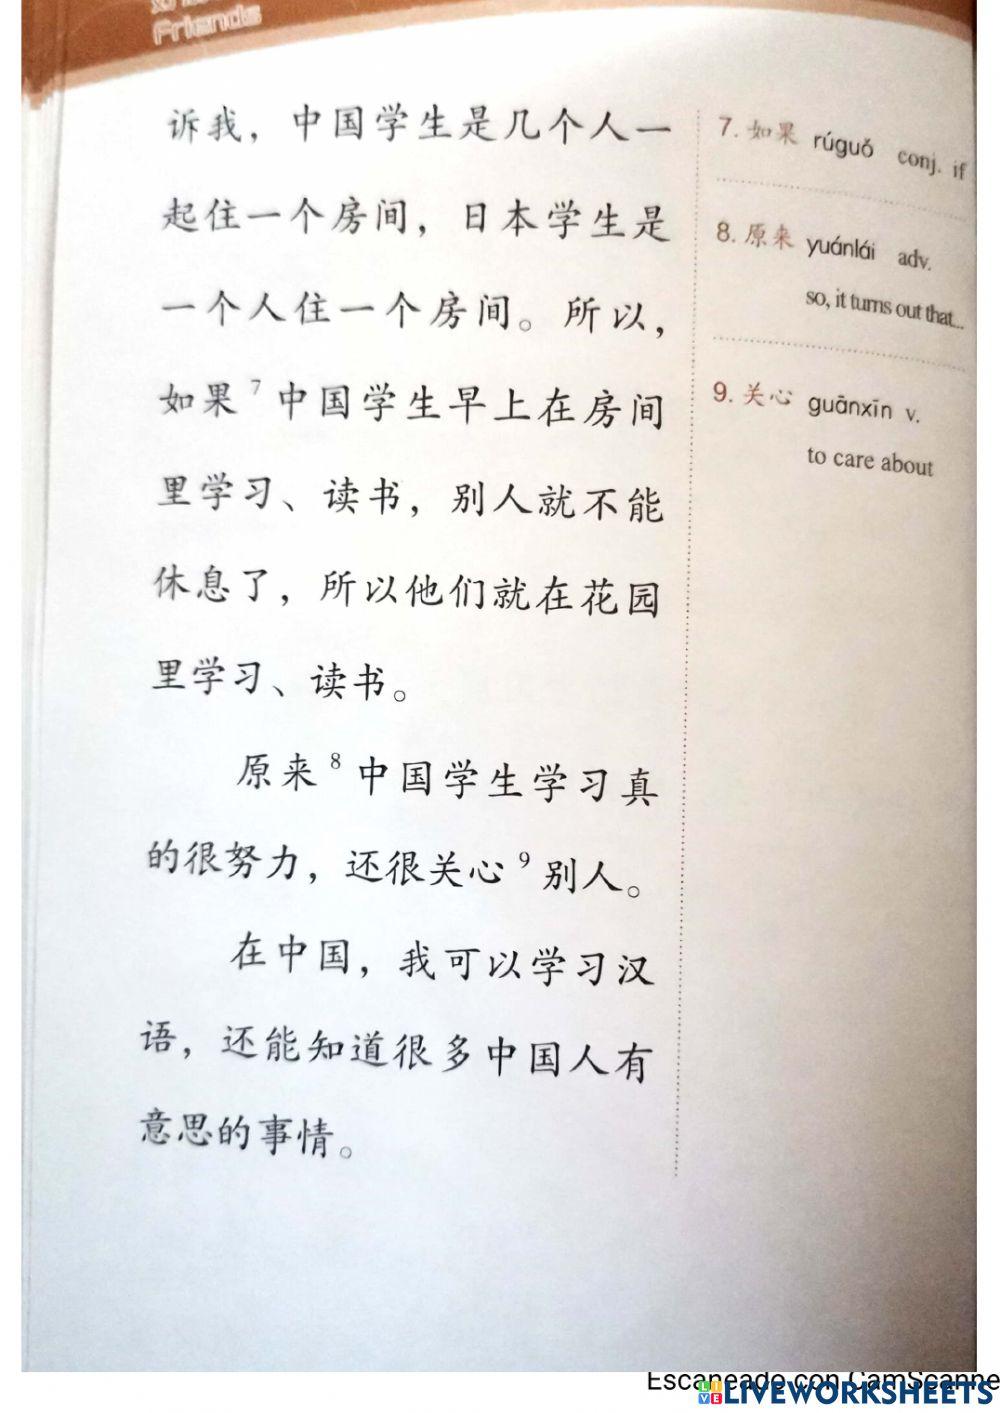 Friends
诉我，中国学生是几个人一
起住一个房间，日本学生是
一个人住一个房间。所以，
如果7中国学生早上在房间
里学习、读书，别人就不能
休息了，所以他们就在花园
里学习、读书。
原来8中国学生学习真
的很努力，还很关心9别人。
在中国，我可以学习汉
语，还能知道很多中国人有
意思的事情。
7. 如果 rúguǒ conj. if
8. 原来 yuánlái adv.
so, it turns out that...
9. 关心 guānxīn v.
to care about
Escaneado con CamScanne
LIVEWORKSHEETS